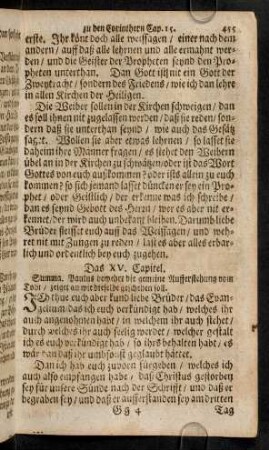 zu den Corinthern Cap. 15. 455
erste. Ihr könt doch alle weissagen / einer nach dem
andern / auff daß alle lehrnen und alle ermahnt wer-
den / und die Geister der Propheten seynd den Pro-
pheten unterthan. Dan Gott ist nit ein Gott der
Zweytracht / sondern des Friedens / wie ich dan lehre
in allen Kirchen der Heiligen.
Die Weiber sollen in der Kirchen schweigen / dan
es soll ihnen nit zugelassen werden / daß sie reden / son-
dern daß sie unterthan seynd / wie auch das Gesätz
sagt. Wollen sie aber etwas lehrnen / so lasset sie
daheim ihre Männer fragen / es stehet den Weibern
übel an in der Kirchen zu schwätzen / oder ist das Wort
Gottes von euch auskommen? oder ists allein zu euch
kommen? so sich jemand lasset düncken er sey ein Pro-
phet / oder Geistlich / der erkenne was ich schreibe /
dan es seynd Gebott des Herrn / wer es aber nit er-
kennet / der wird auch unbekant bleiben. Darum liebe
Brüder fleisset euch auff das Weissagen / und weh-
ret nit mit Zungen zu reden / laß es aber alles erbar-
lich und ordentlich bey euch zugehen.
Das XV. Capitel.
Summa. Paulus beweiset die gemeine Aufferstehung vom
Todt / zeigt an wie dieselbe geschehen soll.
Ich thue euch aber kund liebe Brüder / das Evan-
gelium das ich euch verkündigt hab / welches ihr
auch angenohmen habt / in welchem ihr auch stehet /
durch welches ihr auch seelig werdet / welcher gestalt
ich es euch verkündigt hab / so ihrs behalten habt / es
wär dan daß ihr umbsonst geglaubt hättet.
Dan ich hab euch zuvorn fürgeben / welches ich
auch also empfangen habe / daß Christus gestorben
sey für unsere Sünde nach der Schrifft / und daß er
begraben sey / und daß er aufferstanden sey am dritten
Gg 4 Tag